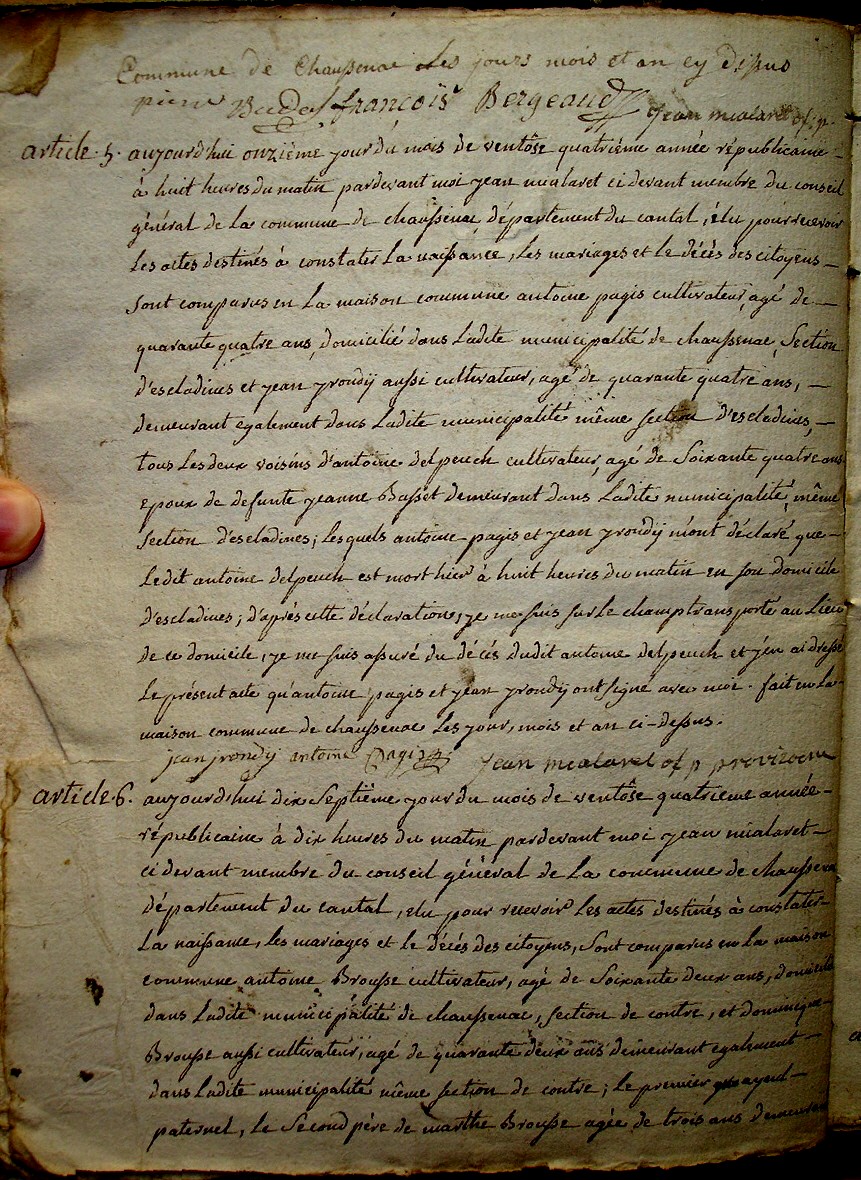 Commune de chaussenac les jours mois et an cy dissus
pierre françoïs Bergeaud jean mialaret
article 5. aujourd'hui onziéme jour du mois de ventôse quatrieme année républicaine
à huit heures du matin pardevant moi jean mialaret ci devant membre du conseil
général de la commune de chaussenac, département du cantal, élu pour recevoir
les actes destinés à constater la naissance, les mariages et le décés des citoyens
sont comparus en la maison commune antoine pagis cultivateur, agé de
quarante quatre ans, domicilié dans ladite municipalité de chaussenac, Section
d'escladines et jean jrondij aussi cultivateur, agé de quarante quatre ans,
demeurant egalement dans ladite municipalité même section d'escladines,
tous les deux voisins d'antoine delpeuch cultivateur, agé de soixante quatre ans
epoux de defunte jeanne Basset demeurant dans ladite municipalité, même
section d'escladines; lesquels antoine pagis et jean jrondij m'ont déclaré que
ledit antoine delpeuch est mort hier à huit heures du matin en son domicile
d'escladines; d'aprés cette déclaration, je me suis sur le champ transporté au lieu
de ce domicile, je me suis assuré du décés dudit antoine delpeuch et j'en ai dressé
le présent acte qu'antoine pagis et jean jrondij ont signé avec moi. fait en la
maison commune de chaussenac les jour, mois et an ci-dessus.
jean jrondij antoine pagis jean mialaret of p provizoire
article 6. aujourd'hui dix septiéme jour du mois de ventôse quatrieme année
républicaine à dix heures du matin pardevant moi jean mialaret
ci devant membre du conseil général de la commune de chaussenac
département du cantal, elu pour recevoir les actes destinés à constater
la naissance, les mariages et le décés des citoyens, sont comparus en la maison
commune antoine Brousse cultivateur, agé de soixante deux ans, domicilié
dans ladite municipalité de chaussenac, section de contre, et dominique
Brousse aussi cultivateur, agé de quarante deux ans demeurant egalement
dans ladite municipalité même section de contre; le premier ayeul
paternel, le second pére de marthe Brousse agée de trois ans demeurant